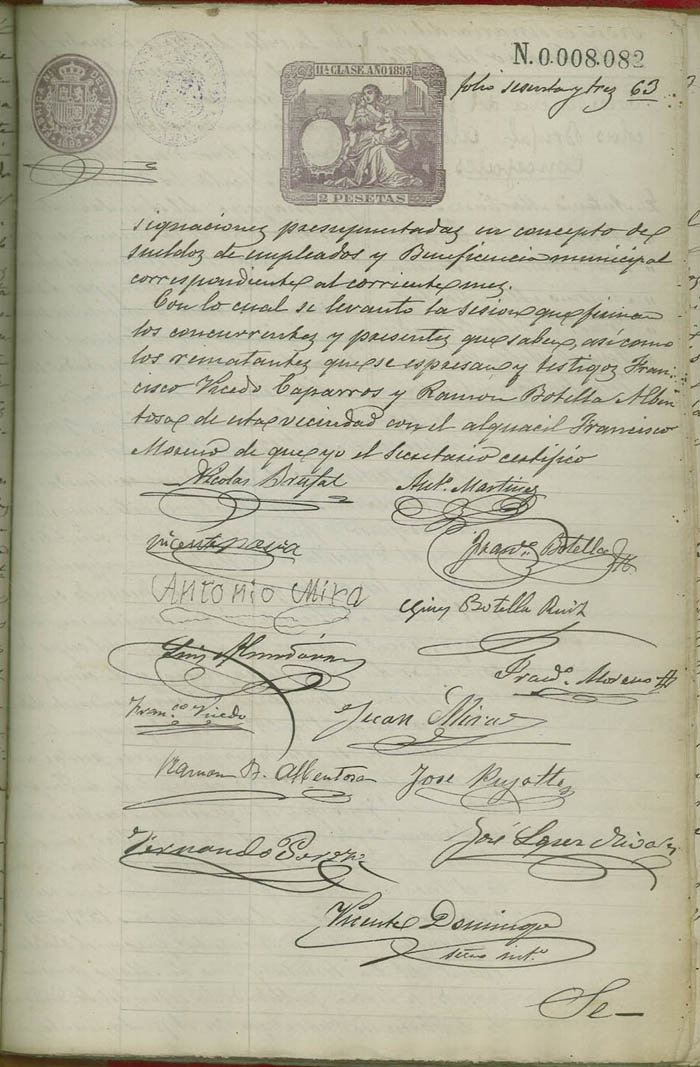 N.0.008.082
11ª CLASE. AÑO 1893
folio sesenta y tres 63
FABRICA N. DEL TIMBRE
1893
2 PESETAS
signaciones presupuestadas en concepto de
sueldos de empleados y Beneficencia municipal
correspondiente al corriente mes.
Con lo cual se levanto la sesion que firman
los concurrentes y presentes que saben, asi como
los rematantes que se espresan y testigos Fran-
cisco Vicedo Caparros y Ramon Botella Alben
tosa de esta vecindad con el alguacil Francisco
Moreno de que yo el Secretario certifico
Nicolas Brufal
Antº. Martinez
Vicente
Francº. Botella
Antonio Mira
Gines Botella Ruiz
Luis Almodovar
Francº. Moreno
Franco Vicedo
Juan Mira
Ramon B. Albentosa
Jose
Fernando Perez
José Lopez
Vicente Domingo
Srio intº.
Se—